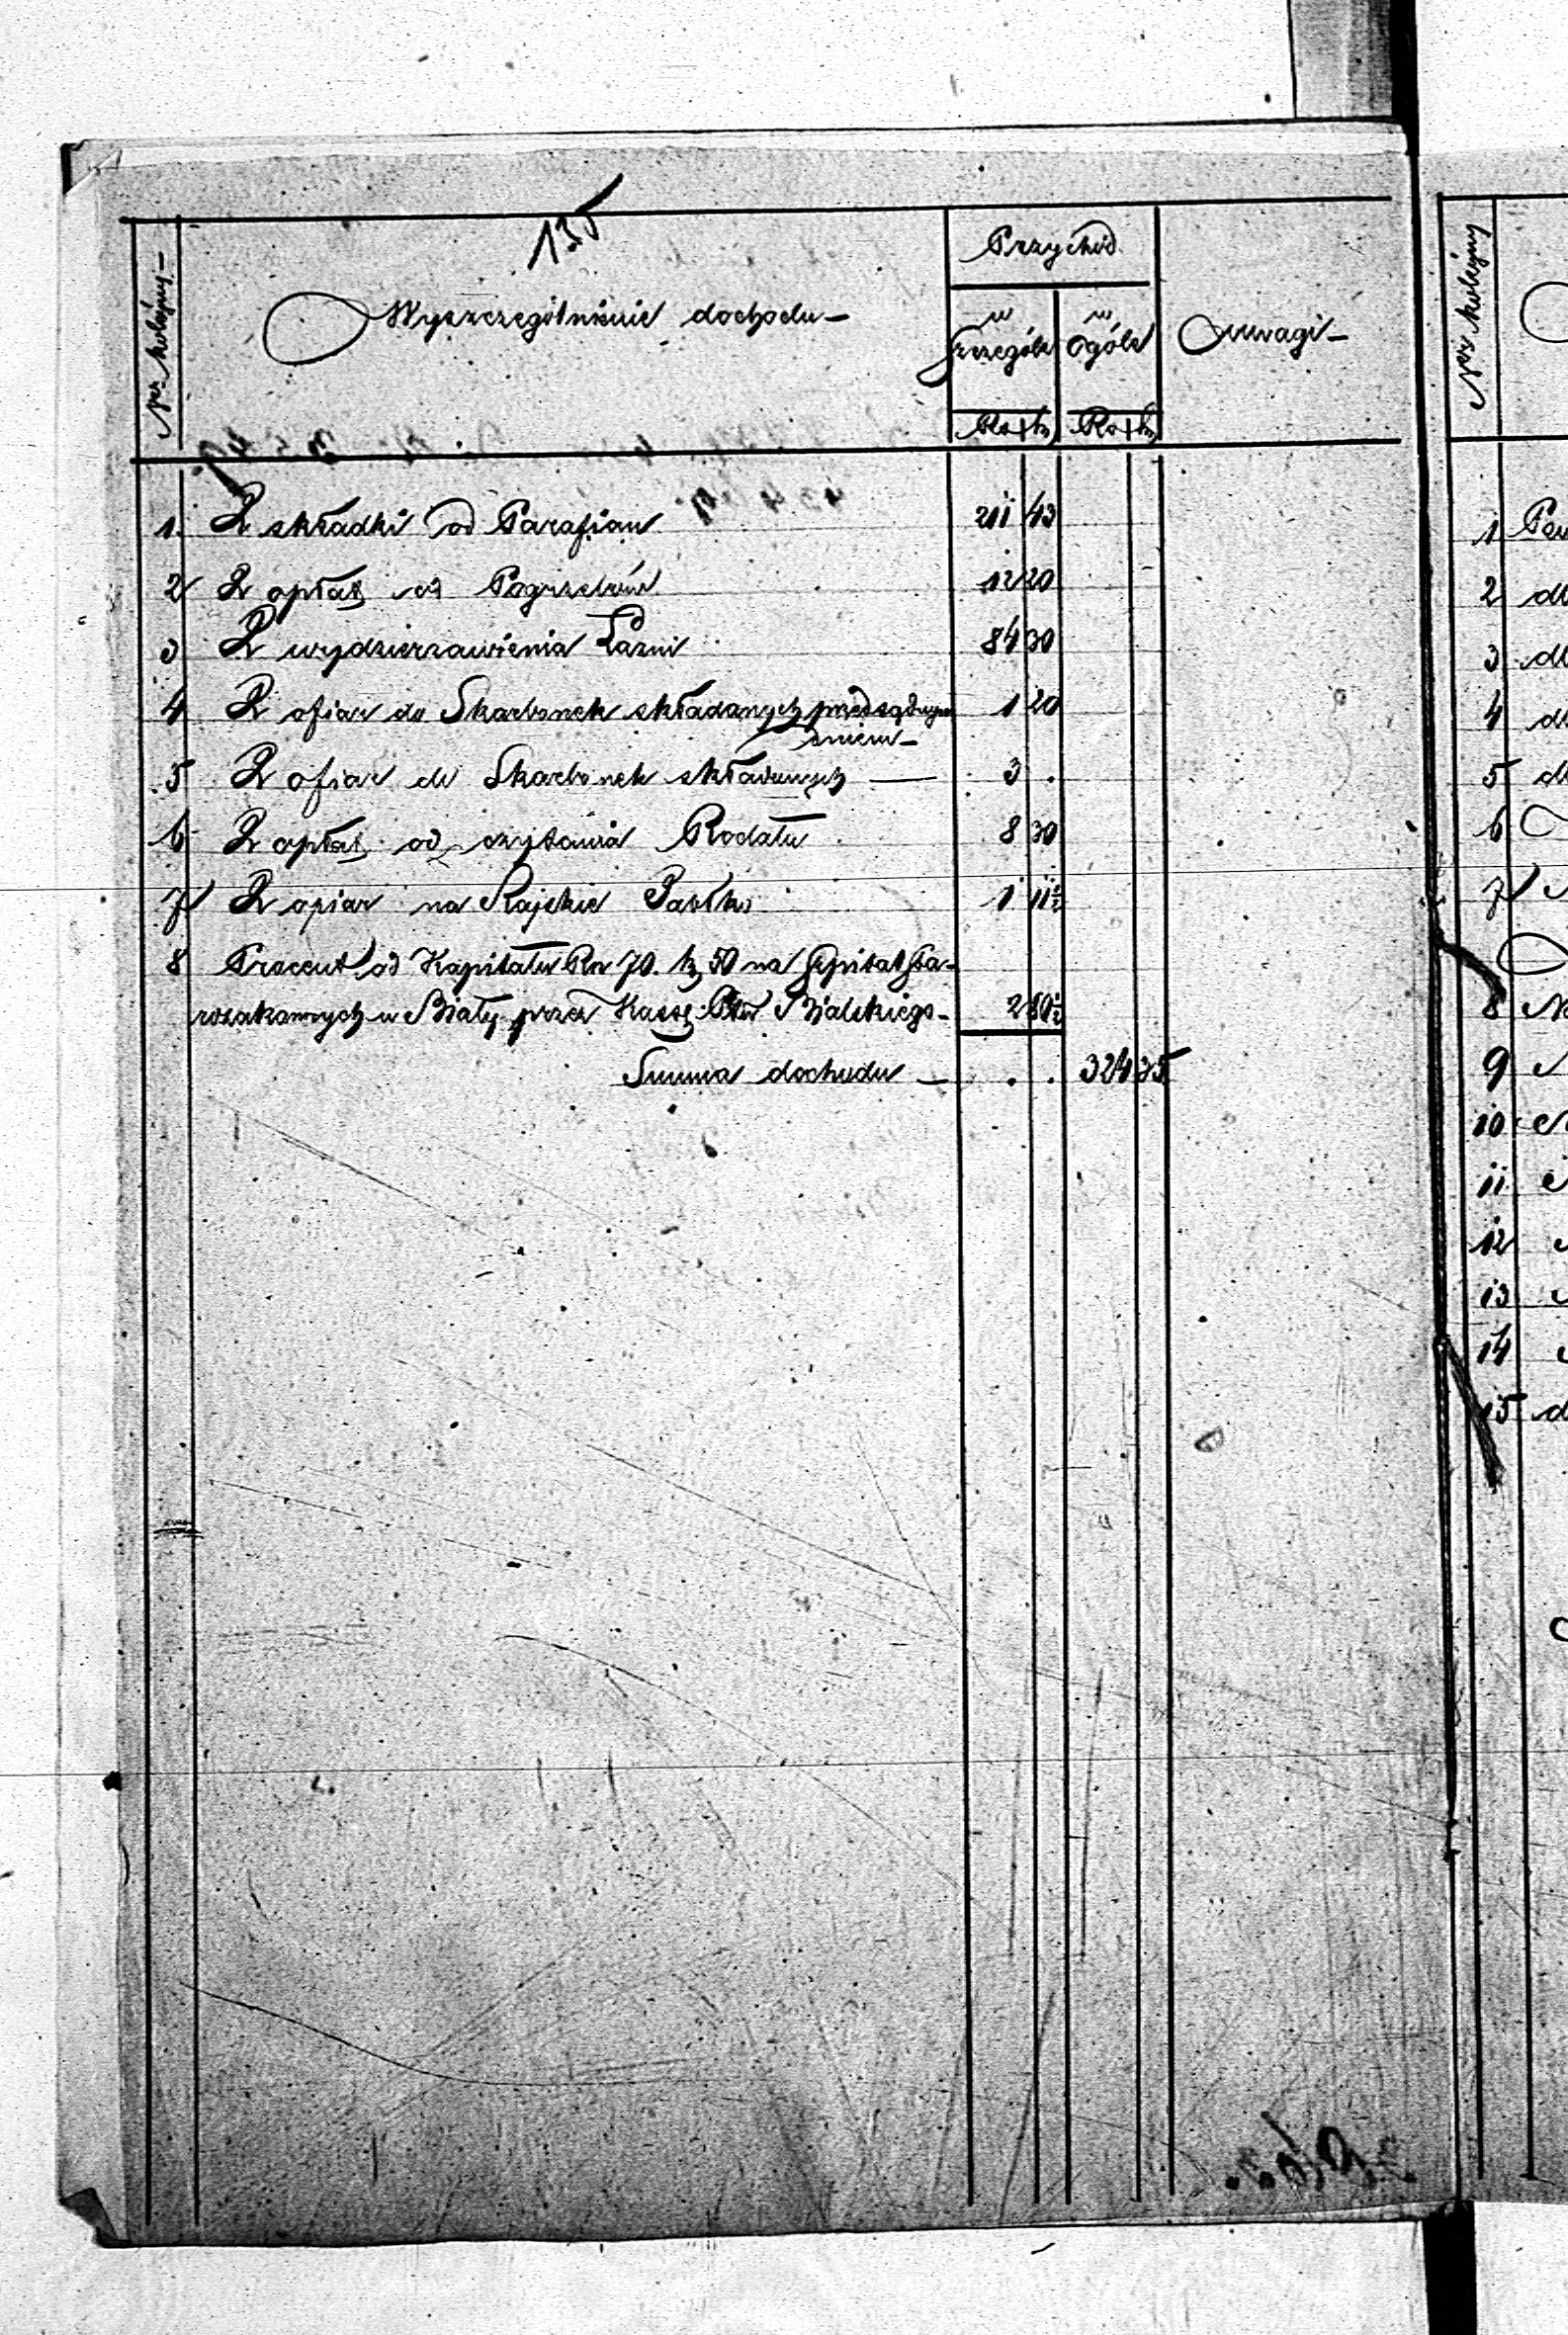 135
Przychód
Nr kolejny
Wyszczególnienie dochodu
w szczególe
w ogóle
uwagi
Rs k Rs k
1. Z składki od Parafian 211 43
2 Z opłat od Pogrzebów 12 20
3 Z wydzierżawienia Łazni 84 30
4 Z ofiar do Skarbonek składanych przed sądnym 1 20
dniem
5 Z ofiar do Skarbonek składanych 3 .
6 Z opłat od czytania Rodału 8 30
7 Z ofiar na Rajskie Jabłko 1 11½
8 Procent od Kapitału Rs 70. k 50 na Szpital Sta-
rozakonnych w Biały przez Kassę Ptu Bialskiego 2 80½
Summa dochodu . . 324 35
Nr kolejny
1
2 dl
3 dl
4 dl
5 dl
6
7
8
9
10
11
12
13
14
15 d